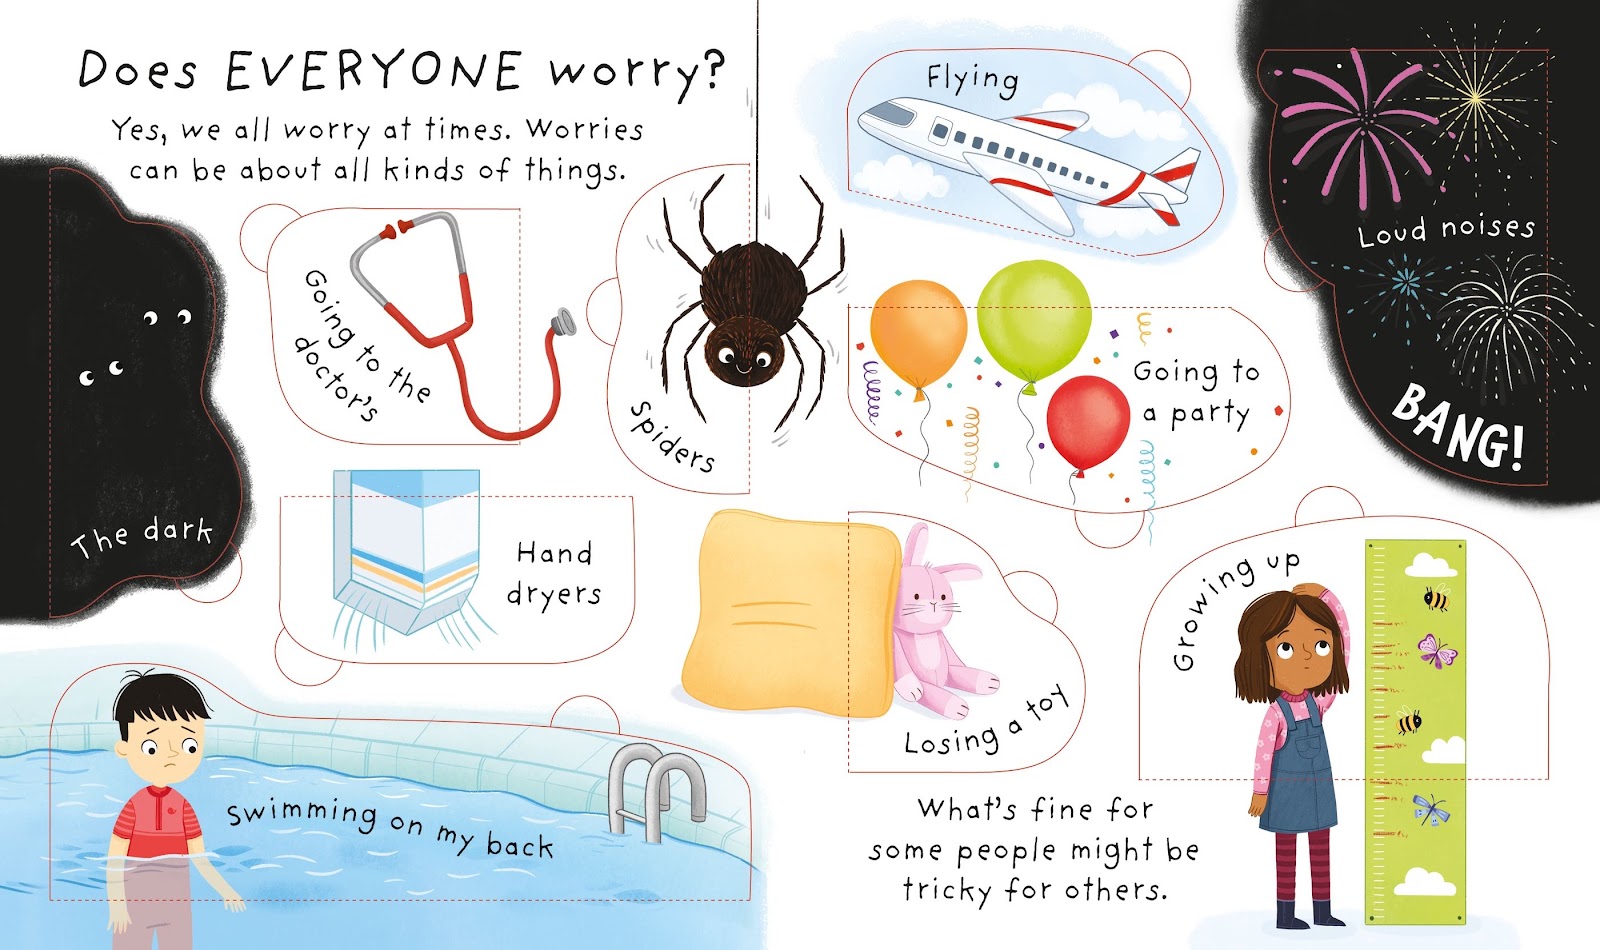 Does EVERYONE worry?
Yes, we all worry at times. Worries
can be about all kinds of things.
Flying
Loud noises
BANG!
Going to the
doctor's
Spiders
Going to
a party
The dark
Hand
dryers
Losing a toy
Growing up
Swimming on my back
What's fine for
some people might be
tricky for others.